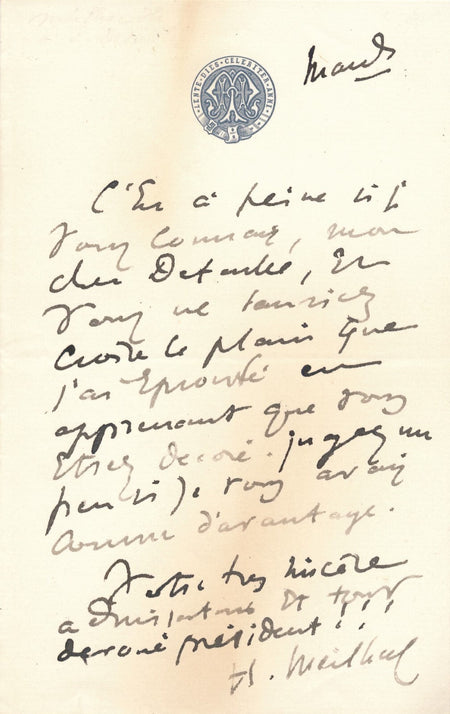 LENTE · DIES · CELERITER · ANNI
Mardi
C'Est à peine si je
Vous connais, mon
cher Detaille, Et
Vous ne sauriez
croire le plaisir que
j'ai Eprouvé en
apprenant que vous
Etiez decoré. jugez un
peu si je vous avais
connu d'avantage.
Votre très sincère
admirateur Et tout
devoué président!!!
H. Meilhac